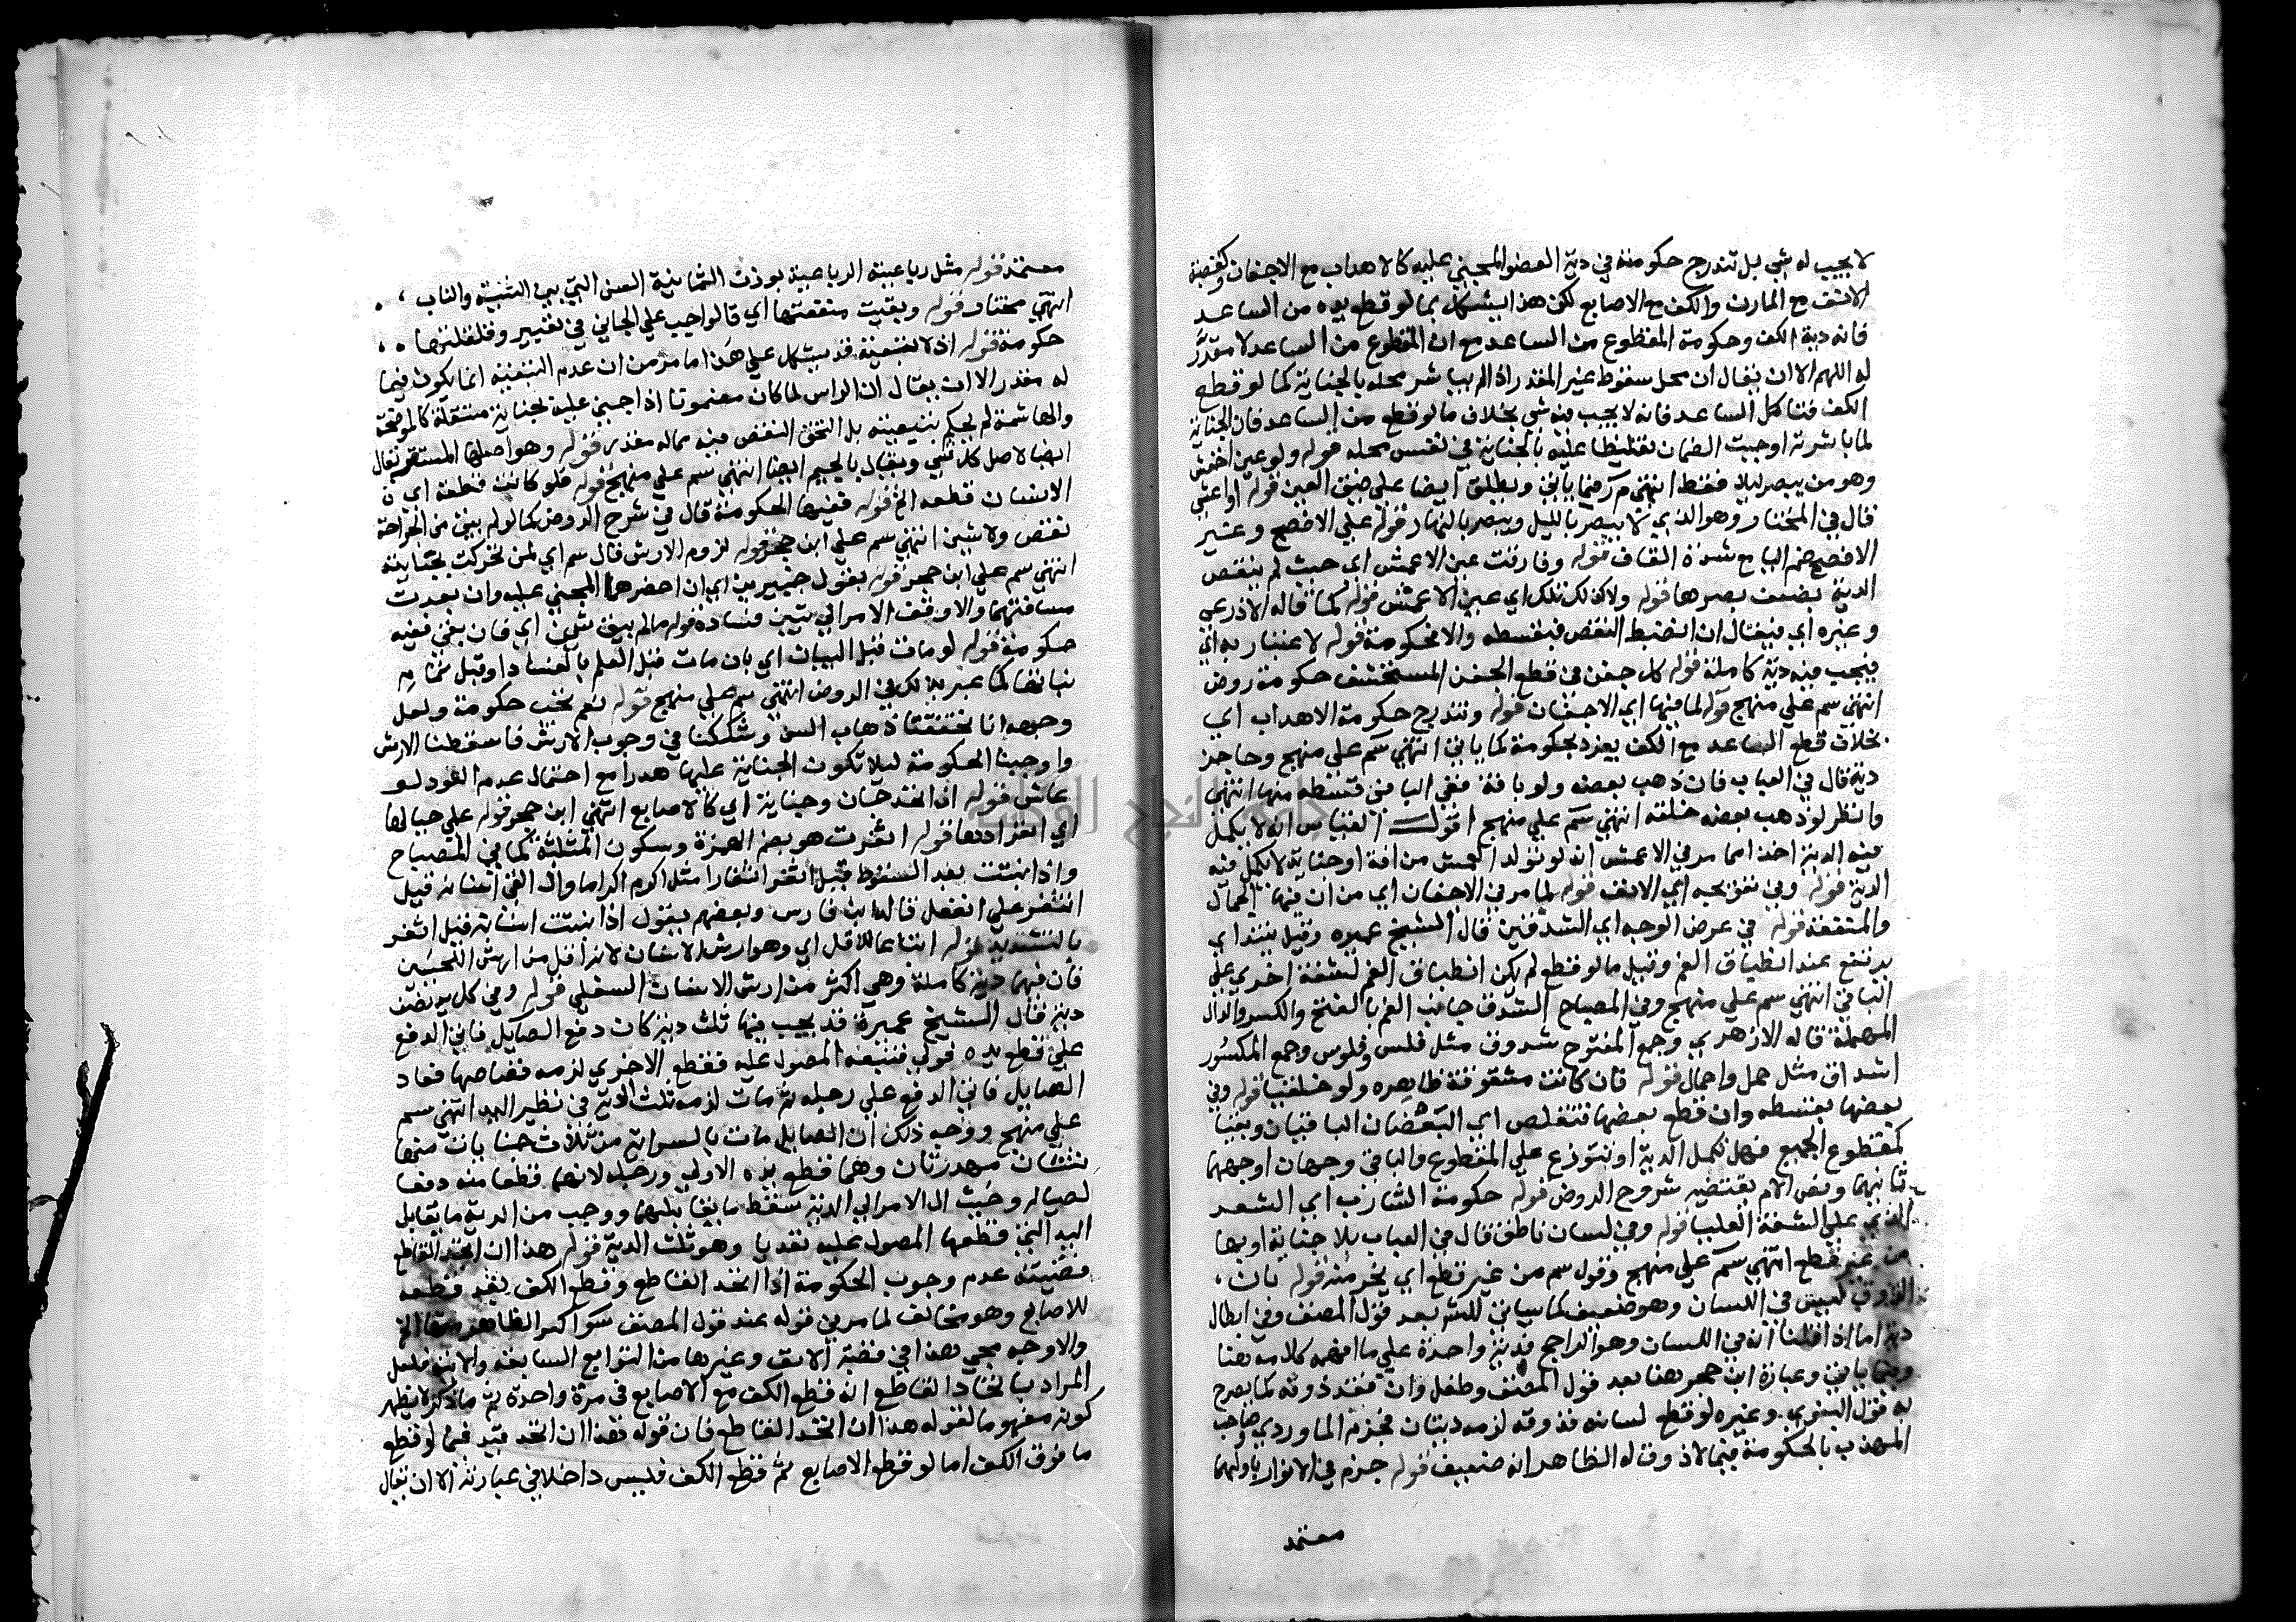 لا يجب له شي بل تندرج حكومته في دية العضو المجني عليه كالاهداب مع الاجفان وكقصبة
الانف مع المارن والكف مع الاصابع لكن هذا يشكل بما لو قطع يده من الساعد
فانه دية الكف وحكومة المقطوع من الساعد مع ان المقطوع من الساعد لا مقدر
له اللهم الا ان يقال ان محل سقوط غير المقدر اذا لم يباشر محله بالجناية كما لو قطع
الكف فتاكل الساعد فانه لا يجب فيه شي بخلاف ما لو قطع من الساعد فان الجناية
لما باشرته اوجبت الضمان تغليظا عليه بالجناية في نفس محله قوله ولو عين اخفش
وهو من يبصر ليلا فقط انتهى م ر فيما ياتي ويطلق ايضا على ضيق العين قوله او اعشى
قال في المختار وهو الذي لا يبصر بالليل ويبصر بالنهار قوله على الافصح وغير
الافصح ضم اليا مع شدة القاف قوله وفارقت عين الاعمش اي حيث لم ينقص
الدية بضعف بصرها قوله ولا كذلك تلك اي عين الاعمش قوله كما قاله الاذرعي
وغيره اي فيقال ان انضبط النقص فبقسطه والا فحكومة قوله لا عتبار به اي
فيجب فيه دية كاملة قوله كل جفن في قطع الجفن المستخشف حكومة روض
انتهى سم على منهج قوله لما فيها اي الاجفان قوله وتندرج حكومة الاهداب اي
بخلاف قطع الساعد مع الكف يفرد بحكومة كما ياتي انتهى سم على منهج وحاجز
دية قال في العباب فان ذهب بعضه ولو بافة ففي الباقي قسطه منها انتهى
وانظر لو ذهب بعضه خلقة انتهى سم على منهج اقول القياس انه لا يكمل
فيه الدية اخذا مما مر في الاعمش انه لو تولد العمش من افة او جناية لا تكمل فيه
الدية قوله وفي تعويجه اي الانف قوله لما مر في الاجفان اي من ان فيها الجمال
والمنفعة قوله في عرض الوجه اي الشدقين قال الشيخ عميره وقيل يبتدا ي
يرتفع عند انطباق الفم وقيل ما لو قطع لم يكن انطباق الفم لشفة اخرى على
الباقي انتهى سم على منهج وفي المصباح الشدق جانب الفم بالفتح والكسر والدال
المهملة قاله الازهري وجمع المفتوح شدوق مثل فلس وفلوس وجمع المكسور
اشداق مثل حمل واحمال قوله فان كانت مشقوقة ظاهره ولو خلقيا قوله وفي
بعضها بقسطه وان قطع بعضها فتقلص اي البعضان الباقيان وبقيا
كمقطوع الجميع فهل تكمل الدية او تتوزع على المقطوع والباقي وجهان اوجههما
ثانيهما ونص الام يقتضيه شروح الروض قوله حكومة الشارب اي الشعر
الذي على الشفة العليا قوله وفي لسان ناطق قال في العباب بلا جناية او بها
من غير قطع انتهى سم على منهج وقول سم من غير قطع اي بخرمنه قوله بان
الذوق ليس في اللسان وهو ضعيف كما سياتي للش بعد قول المصنف وفي ابطال
دية اما اذا قلنا انه في اللسان وهو الراجح فدية واحدة على ما افهمه كلامه هنا
وفيما ياتي وعبارة ابن حجر هنا بعد قول المصنف وطفل وان فقد ذوقه كما يصرح
به قول البغوي وغيره لو قطع لسانه فذهب ذوقه لزمه ديتان فجزم الماوردي وصاحب
المهذب بالحكومة فيما لا ذوق له الظاهر انه ضعيف قوله جزم في الانوار باولهما
معتمد
معتمد قوله مثل رباعية الرباعية بوزن الثمانية السن التي بين الثنية والناب
انتهى مختار قوله وبقيت منفعتها اي قالواجب على الجاني في تغيير وقلقلتها
حكومة قوله اذ لا بتبعية قد يشكل على هذا ما مر من ان عدم التبعية انما يكون فيما
له مقدر الا ان يقال ان الراس لما كان مضمونا اذا جني عليه بجناية مستقلة كالموضحة
والهاشمة لم يحكم بتبعيته بل التحق النقص فيه بماله مقدر قوله وهو اصلها المستقر يقال
ايضا لاصل كل شي ويقال بالجيم ايضا انتهى سم على منهج قوله فلو كانت قطعة اي ن
الانسان قطعه الخ قوله ففيها الحكومة قال في شرح الروض كما لو لم يبق من الجراحة
نقص ولا شين انتهى سم على ابن حجر قوله لزوم الارش قال سم اي لمن تحركت بجنايته
انتهى سم على ابن حجر قوله بقول خبيرين اي ان احضرهما المجني عليه وان بعدت
مسافتهما والا وقف الامر الى تبين فساده قوله ما لم يبق شين اي فان بقي ففيه
حكومة قوله لو مات قبل البيان اي بان مات قبل العلم بالفساد او قبل تمام
نباتها كما عبر بذلك في الروض انتهى سم على منهج قوله نعم يجب حكومة ولعل
وجهه انا تحققنا ذهاب السن وشككنا في وجوب الارش فاسقطنا الارش
واوجبنا الحكومة ليلا تكون الجناية عليها هدرا مع احتمال عدم العود لو
عاش قوله اذ اتحد جان وجناية اي كالاصابع انتهى ابن حجر قوله على حيالها
اي انفرادها قوله اثغرت هو بضم الهمزة وسكون المثلثة كما في المصباح
واذا نبتت بعد السقوط قيل اثغر اثغارا مثل اكرم اكراما واذا القى اسنانه قيل
اثغر على افتعل قاله ابن فارس وبعضهم يقول اذا نبتت اسنانه قيل اثغر
بالتشديد قوله اتباعا للاقل اي وهو ارش الاسنان لانه اقل من ارش اللحيين
فان فيهما دية كاملة وهي اكثر من ارش الاسنان السفلى قوله وفي كل يد نصف
دية قال الشيخ عميرة قد يجب فيها ثلث دية كان دفع الصايل فاتى الدفع
على قطع يده قولى فتبعه المصول عليه فقطع الاخرى لزمه قصاصها فعاد
الصايل فاتى الدفع على رجله ثم مات لزمه ثلث الدية في نظير اليد انتهى سم
على منهج ووجه ذلك ان الصايل مات بالسراية من ثلاث جنايات منها
ثنتان مهدرتان وهما قطع يده الاولى ورجله لانهما قطعا منه دفعا
لصياله وحيث ال الامر الى الدية سقط ما يقابلهما ووجب من الدية ما يقابل
اليد التي قطعها المصول عليه تعديا وهو ثلث الدية قوله هذا ان اتحد القاطع
قضيته عدم وجوب الحكومة اذا اتحد القاطع وقطع الكف بعد قطعه
للاصابع وهو مخالف لما مر في قوله عند قول المصنف سوا كسر الظاهر منها الخ
والاوجه مجي هذا في قصبة الانف وغيرها من التوابع السابقة والاتية فلعل
المراد باتحاد القاطع انه قطع الكف مع الاصابع في مرة واحدة ثم ما ذكر لا يظهر
كونه مفهوما لقوله هذا ان اتحد القاطع فان قوله هذا ان اتحد قيد فيما لو قطع
ما فوق الكف اما لو قطع الاصابع ثم قطع الكف فليس داخلا في عبارته الا ان يقال